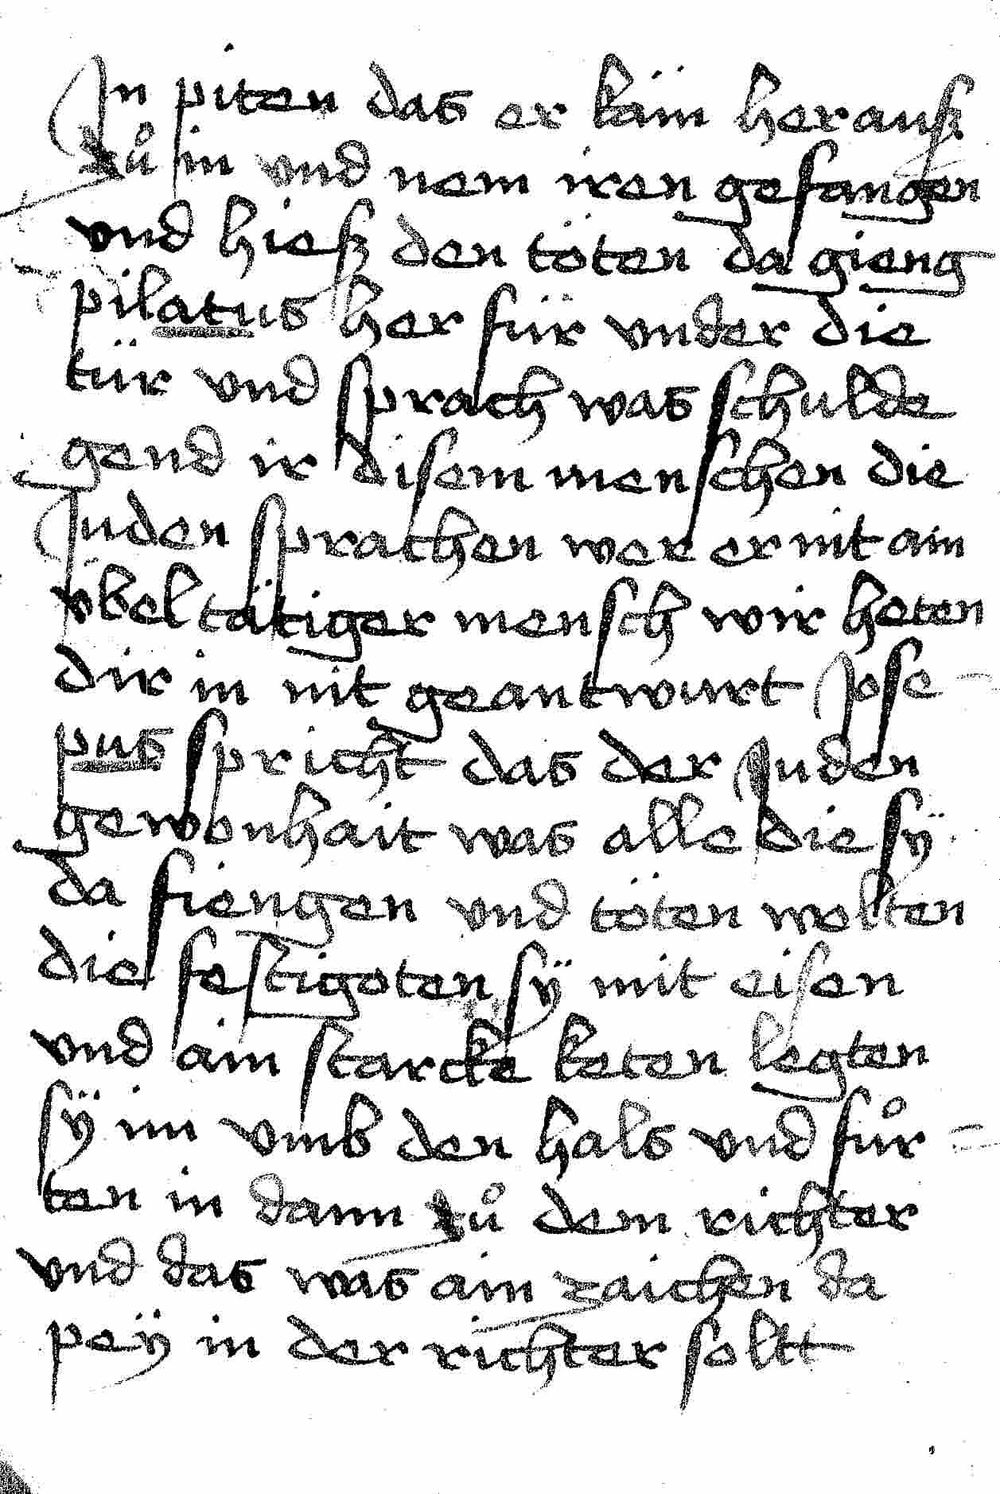 In piten das er käm herausz
zů in vnd nem iren gefangen
vnd hiesz den töten da gieng
pilatus her für vnder die
tür vnd sprach was schulde
gend ir disem menschen die
Juden sprachen wer er nit ain
vbeltätiger mensch wir heten
dir in nit geantwurt Jose-
pus spricht das der Juden
gewonhait was alle die sÿ
da fiengen vnd töten wolten
die festigoten sÿ mit eisen
vnd ain starcke keten legten
sÿ im vmb den hals vnd fůr=
ten in dann zů dem richter
vnd das was ain zaichen da
peÿ in der richter soltt